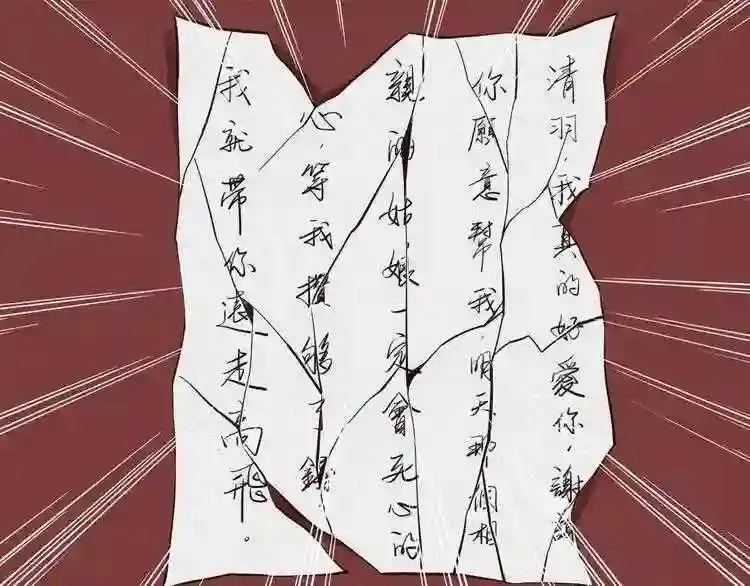 清羽,我真的好愛你,謝謝
你願意幫我,明天那個相
親的姑娘一定會死心的
心,等我攢够了錢
我就带你遠走高飛。